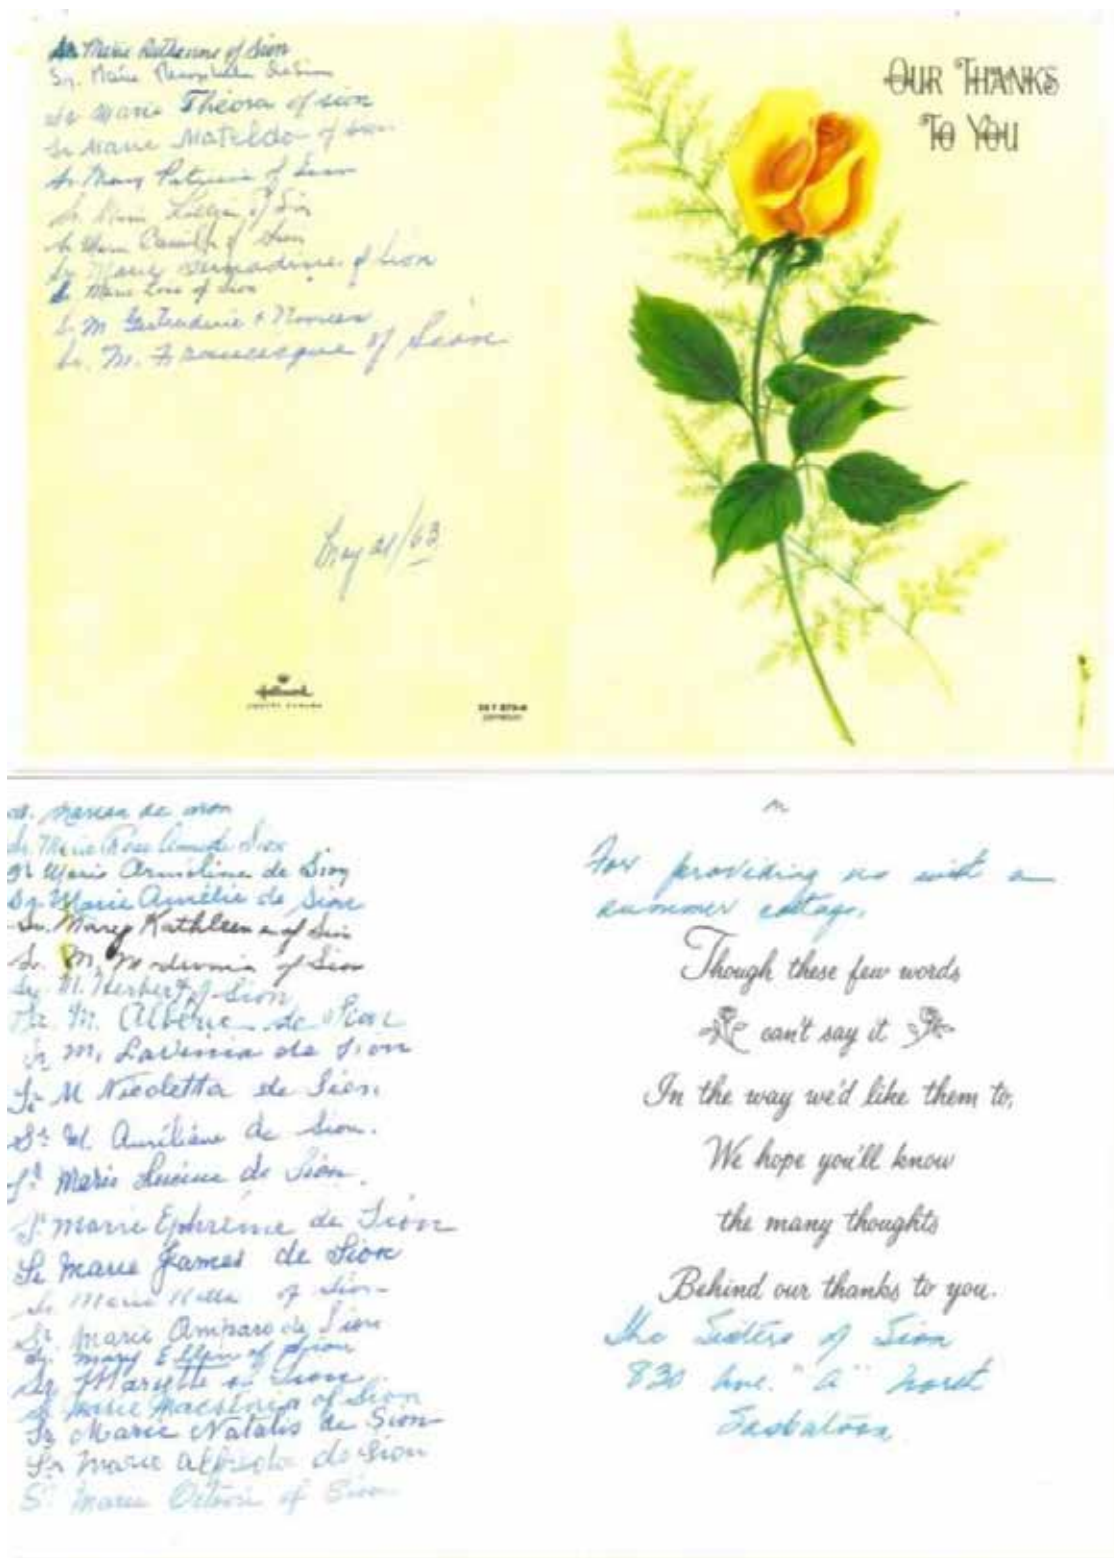 Sr Marie
Sr. Marie
Sr Marie Théora of sion
Sr Marie Matilda of Sion
Sr Mary Patricia of Sion
Sr. Marie of Sion
Sr Marie Camilla of Sion
Sr Marie Bernadine of Sion
Sr Marie of Sion
Sr. M
Sr. M. Francesque of Sion
/63
Hallmark
OUR THANKS
TO YOU
Sr. de Sion
Sr. Marie Rose de Sion
Sr Marie Armeline de Sion
Sr. Marie Aurélie de Sion
Sr. Mary Kathleen of Sion
Sr. M. of Sion
Sr. M. Herbert of Sion
Sr. M. Alberic de Sion
Sr M. Lavinia de Sion
Sr M Nicoletta de Sion.
Sr M. Auréliane de Sion.
Sr Marie Lucine de Sion.
Sr Marie Ephrème de Sion
Sr Marie James de Sion
Sr Marie of Sion
Sr. Marie Amparo de Sion
Sr. Mary Ellen of Sion
Sr Mariette Sion
Sr Marie of Sion
Sr Marie Natalis de Sion
Sr Marie Alfreda de Sion
Sr Marie of Sion
For providing us with a
summer cottage.
Though these few words
can't say it
In the way we'd like them to,
We hope you'll know
the many thoughts
Behind our thanks to you.
The Sisters of Sion
830 Ave. "A" North
Saskatoon